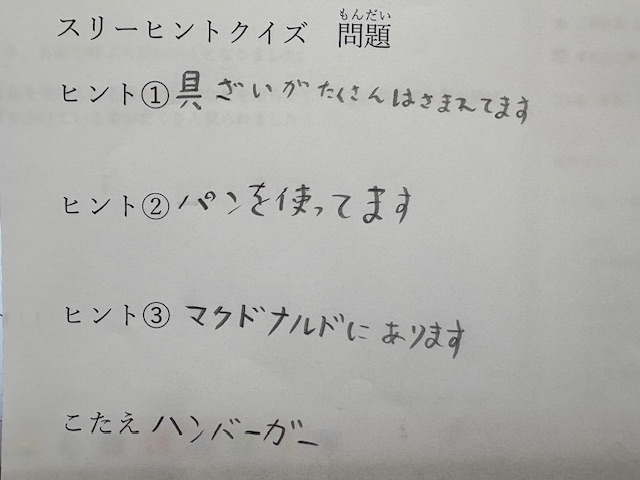 スリーヒントクイズ 問題
もんだい
ヒント①具ざいがたくさんはさまれてます
ヒント②パンを使ってます
ヒント③マクドナルドにあります
こたえ ハンバーガー